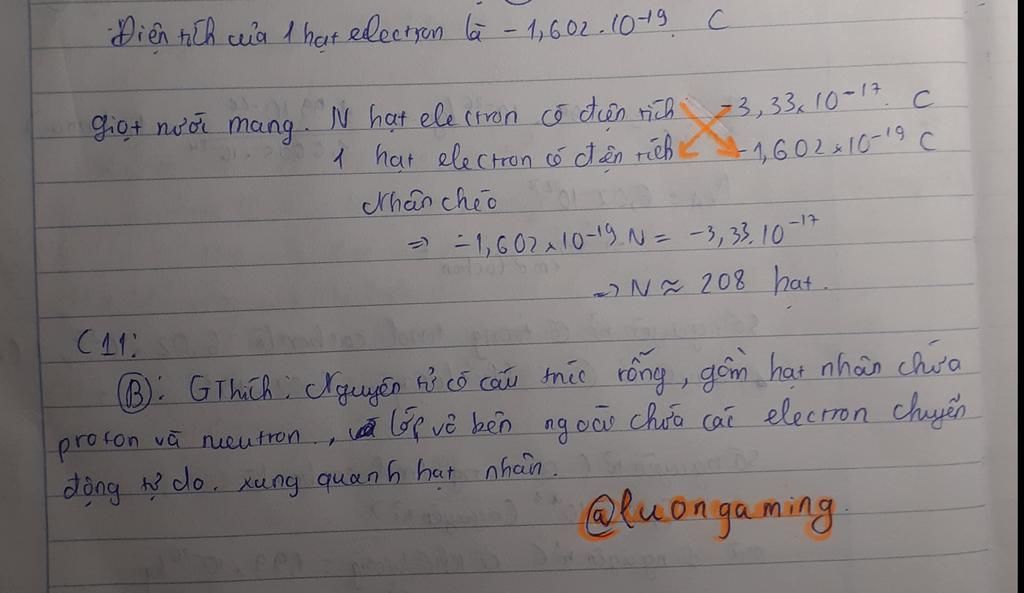 Điện tích của 1 hạt electron là - 1,602 . 10⁻¹⁹. C
giọt nước mang. N hạt electron có điện tích -3,33 x 10⁻¹⁷. C
1 hạt electron có điện tích -1,602 x 10⁻¹⁹ C
Nhân chéo
=> -1,602 x 10⁻¹⁹ N = -3,33.10⁻¹⁷
=> N ≈ 208 hạt.
C11:
(B): GThích: Nguyên tử có cấu trúc rỗng, gồm hạt nhân chứa
proton và neutron, lớp vỏ bên ngoài chứa các electron chuyển
động tự do. xung quanh hạt nhân.
@luongaming.